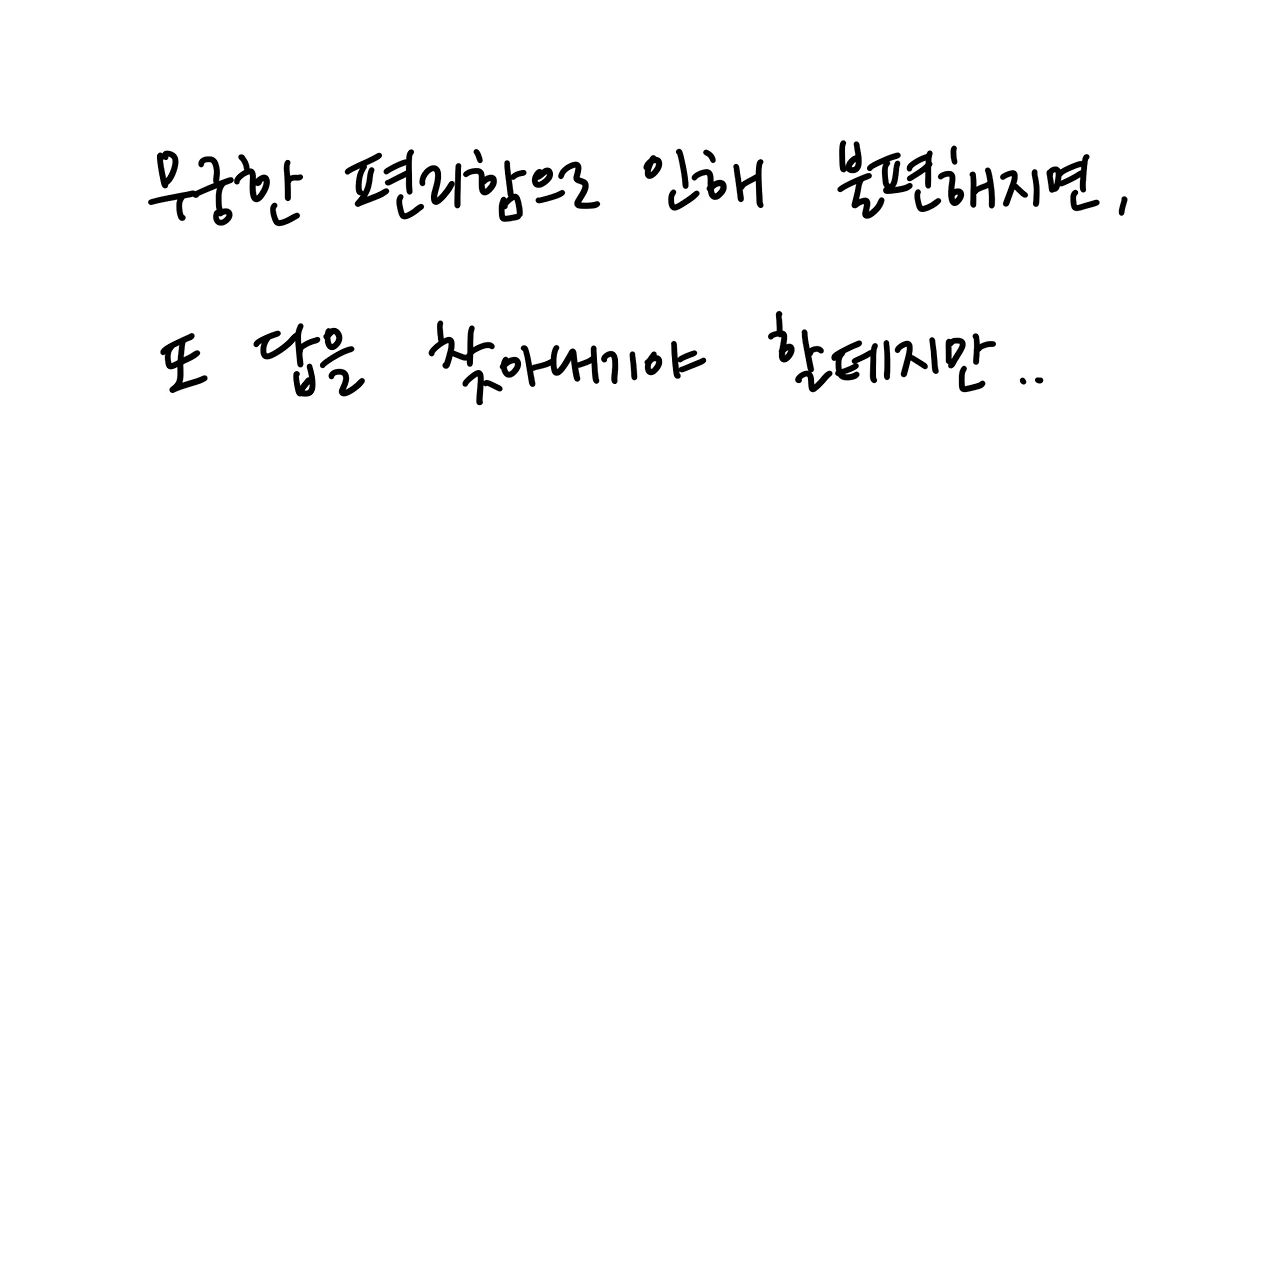 무궁한 편리함으로 인해 불편해지면,
또 답을 찾아내기야 할테지만..